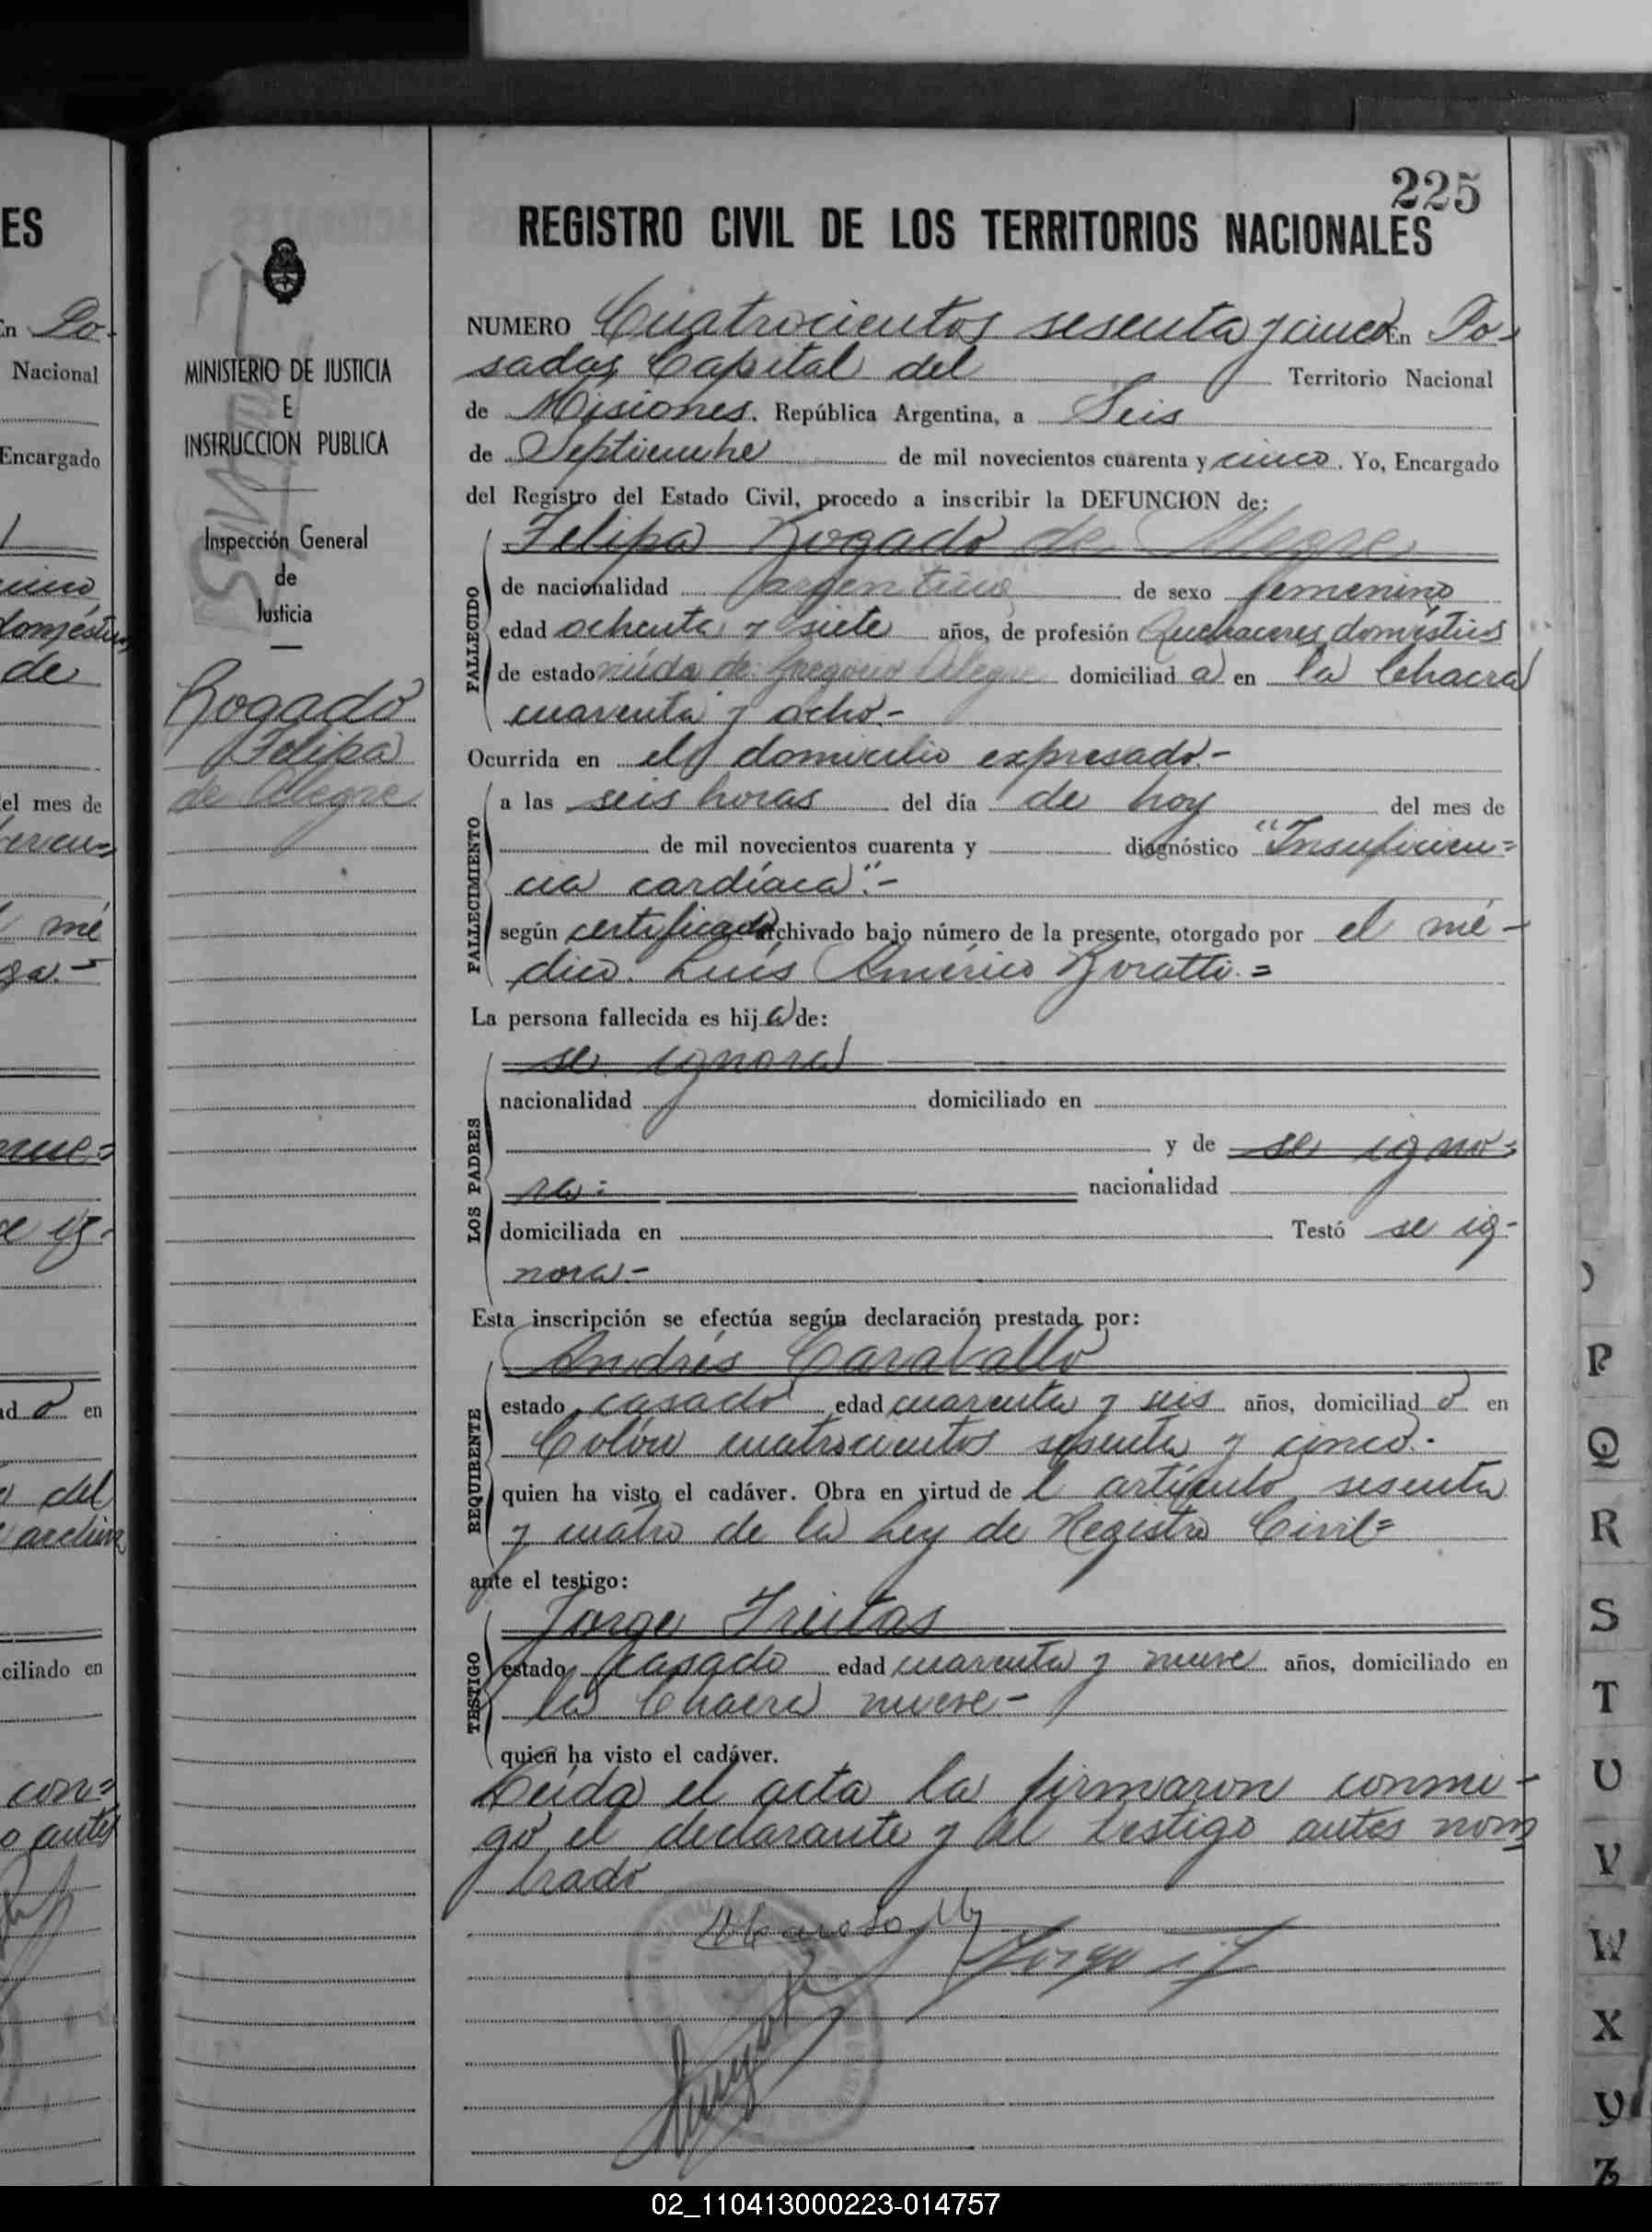 225
REGISTRO CIVIL DE LOS TERRITORIOS NACIONALES
MINISTERIO DE JUSTICIA
E
INSTRUCCION PUBLICA
Inspección General
de
Justicia
Rogado
Felipa
de Alegre
NUMERO Cuatrocientos sesenta y cinco En Po-
sadas Capital del Territorio Nacional
de Misiones. República Argentina, a Seis
de Septiembre de mil novecientos cuarenta y cinco. Yo, Encargado
del Registro del Estado Civil, procedo a inscribir la DEFUNCION de:
Felipa Rogado de Alegre
FALLECIDO
de nacionalidad argentina de sexo femenino
edad ochenta y siete años, de profesión Quehaceres domésticos
de estado viuda de Gregorio Alegre domiciliad a en la Chacra
cuarenta y ocho.-
Ocurrida en el domicilio expresado.-
FALLECIMIENTO
a las seis horas del día de hoy del mes de
de mil novecientos cuarenta y diagnóstico "Insuficien=
cia cardíaca".-
según certificado archivado bajo número de la presente, otorgado por el mé-
dico. Luis Américo Boratti.=
La persona fallecida es hij a de:
LOS PADRES
se ignora
nacionalidad domiciliado en
y de se igno=
ra.
nacionalidad
domiciliada en Testó se ig-
nora-
Esta inscripción se efectúa según declaración prestada por:
REQUIRENTE
Andrés Caraballo
estado casado edad cuarenta y seis años, domiciliad o en
Colón cuatrocientos sesenta y cinco.-
quien ha visto el cadáver. Obra en virtud de l artículo sesenta
y cuatro de la Ley de Registro Civil=
ante el testigo:
TESTIGO
Jorge Freitas
estado casado edad cuarenta y nueve años, domiciliado en
la Chacra nueve-
quien ha visto el cadáver.
Leída el acta la firmaron conmi-
go el declarante y el testigo antes nom
brado
Jorge
P
Q
R
S
T
U
V
W
X
Y
Z
02_110413000223-014757